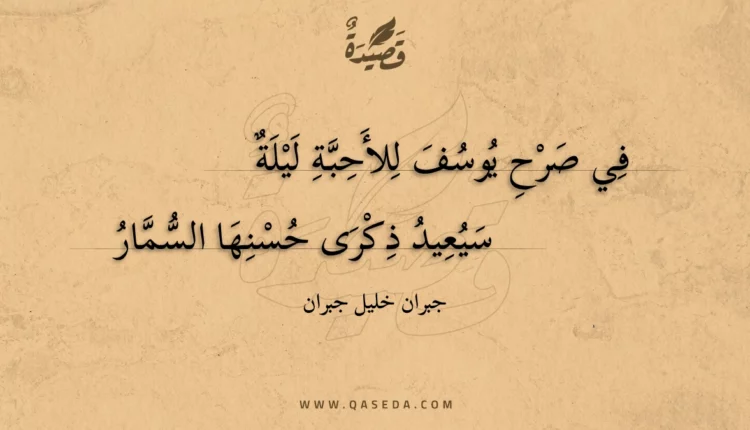 قَصِيْدَةٌ
فِي صَرْحِ يُوسُفَ لِلأَحِبَّةِ لَيْلَةٌ
سَيُعِيدُ ذِكْرَى حُسْنِهَا السُّمَّارُ
جبران خليل جبران
WWW.QASEDA.COM